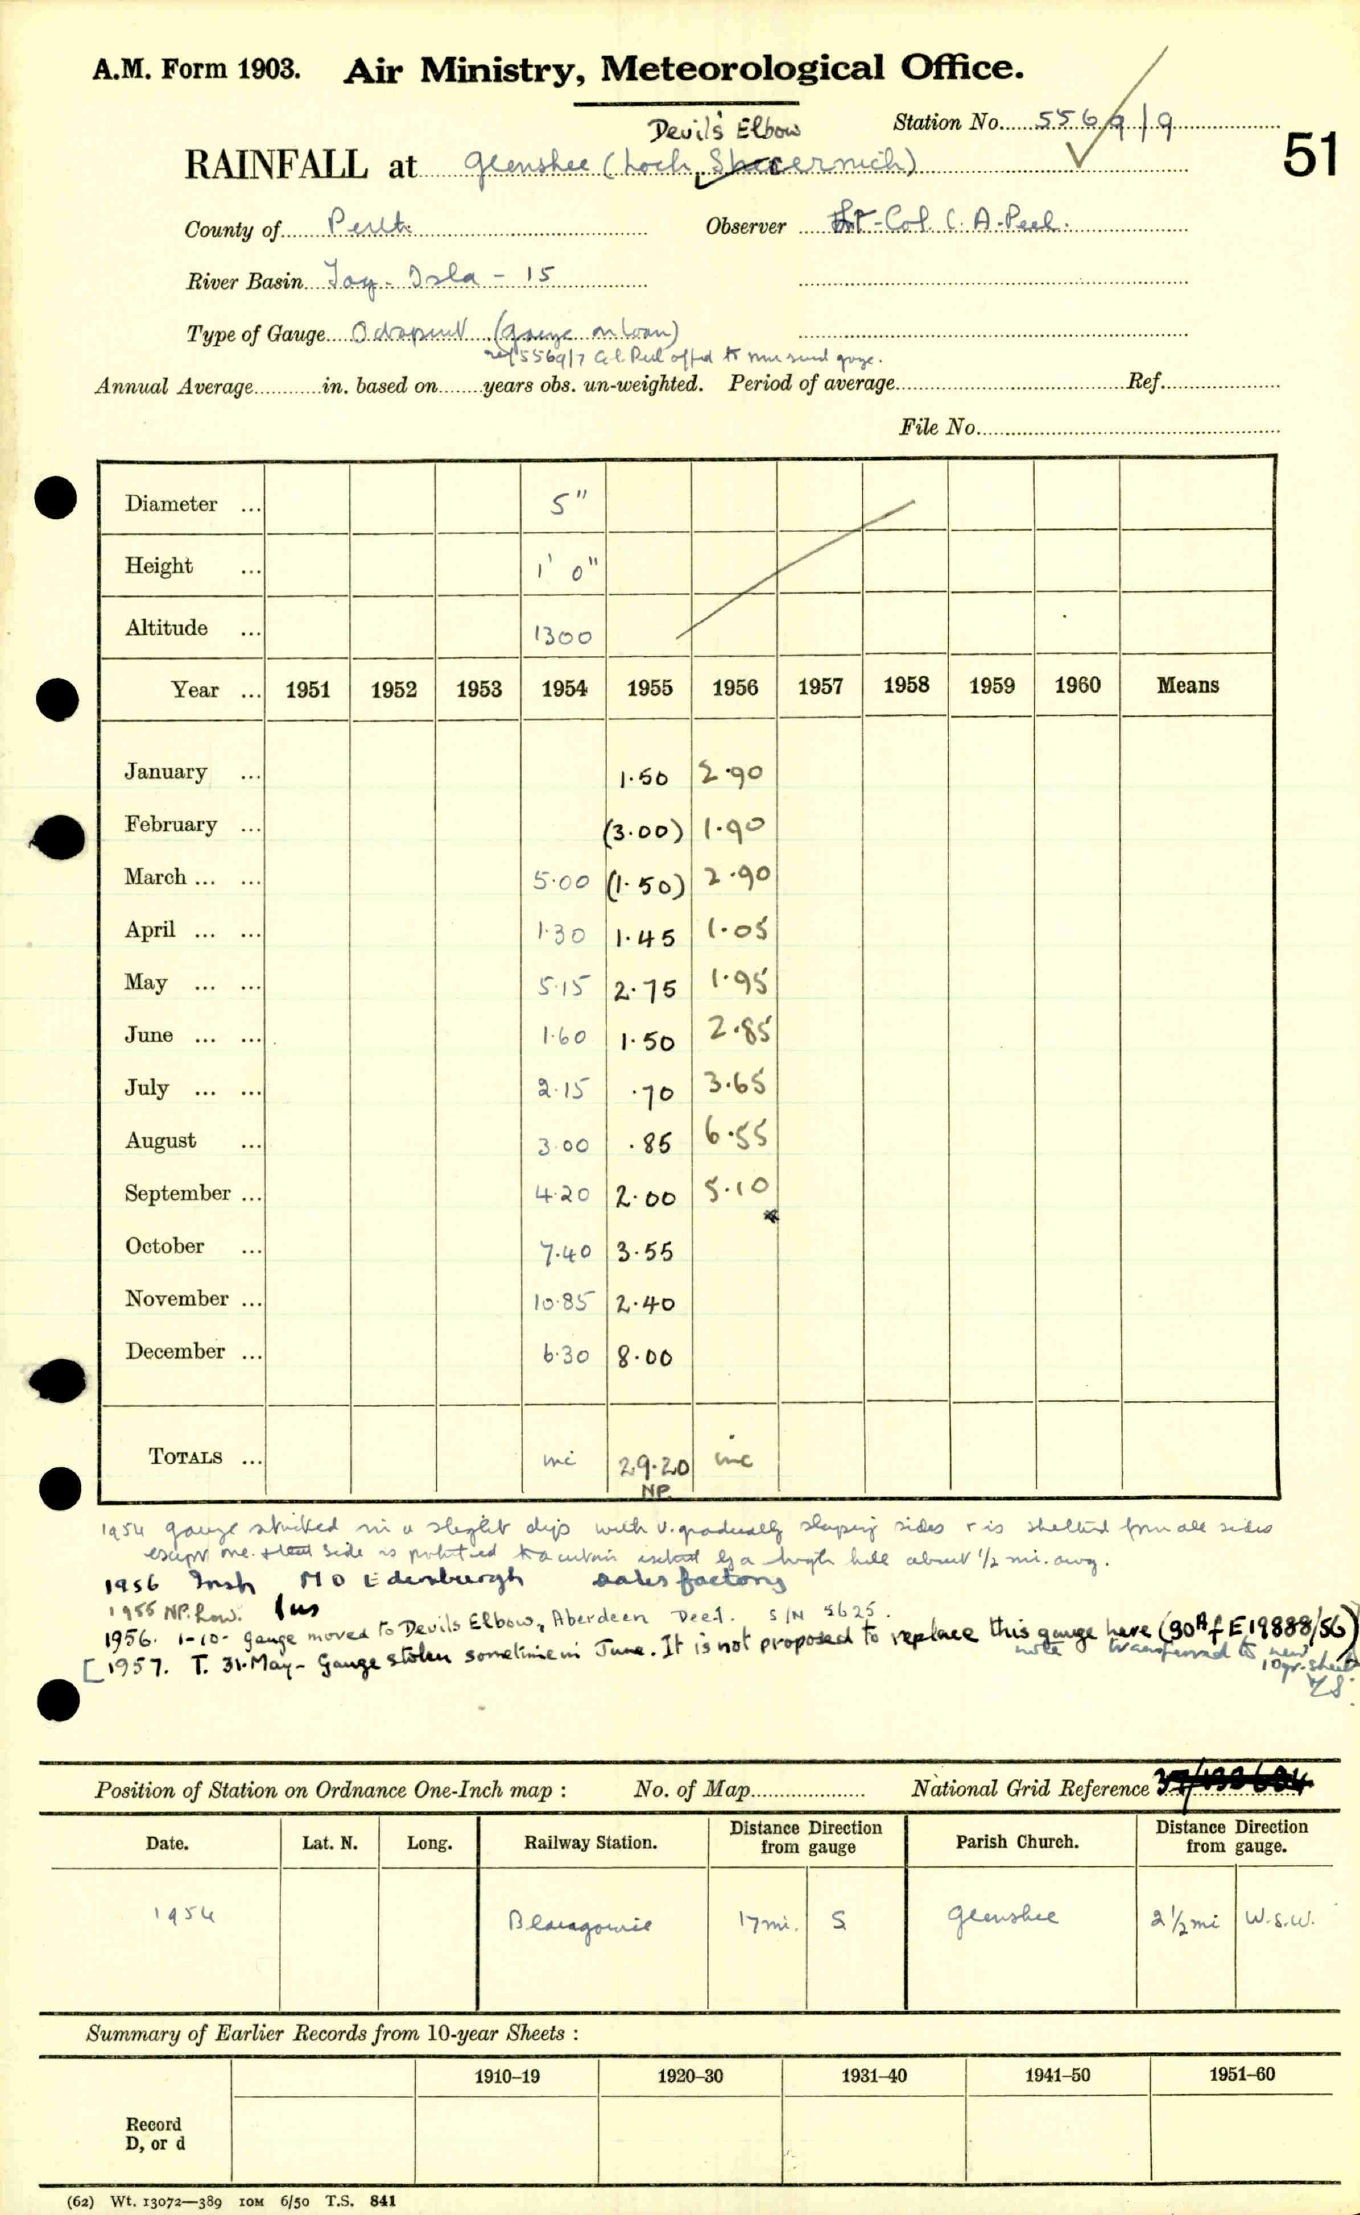 A.M. Form 1903. Air Ministry, Meteorological Office.
Station No. 5569/9
51
Devil's Elbow
RAINFALL at Glenshee (Loch
County of Perth Observer Lt-Col. C. A. Peel.
River Basin Tay - Isla - 15
Type of Gauge Octapent (gauge on loan)
ref 5569/7 Col Peel offd to
Annual Average in. based on years obs. un-weighted. Period of average Ref.
File No.
Diameter ... 5"
Height ... 1' 0"
Altitude ... 1300
Year ... 1951 1952 1953 1954 1955 1956 1957 1958 1959 1960 Means
January ... 1.50 2.90
February ... (3.00) 1.90
March ... ... 5.00 (1.50) 2.90
April ... ... 1.30 1.45 1.05
May ... ... 5.15 2.75 1.95
June ... ... 1.60 1.50 2.85
July ... ... 2.15 .70 3.65
August ... 3.00 .85 6.55
September ... 4.20 2.00 5.10
October ... 7.40 3.55
November ... 10.85 2.40
December ... 6.30 8.00
TOTALS ... inc 29.20 inc
NP.
1954 gauge in a slight dip with v. gradually sloping sides & is sheltered from all sides
except one. side is by a high hill about 1/2 mi. away.
1956 Insp M O Edinburgh satisfactory
1955 NP. Low.
1956. 1-10- gauge moved to Devils Elbow, Aberdeen Deet. S/N 5625.
[1957. T. 31.May- Gauge stolen sometime in June. It is not proposed to replace this gauge here (90A f E19888/56)
note transferred to new
10yr. sheet
Position of Station on Ordnance One-Inch map : No. of Map National Grid Reference
Date. Lat. N. Long. Railway Station. Distance Direction from gauge Parish Church. Distance Direction from gauge.
1954 Blairgowrie 17 mi. S Glenshee 2 1/2 mi W.S.W.
Summary of Earlier Records from 10-year Sheets :
1910–19 1920–30 1931–40 1941–50 1951–60
Record
D, or d
(62) Wt. 13072—389 IOM 6/50 T.S. 841